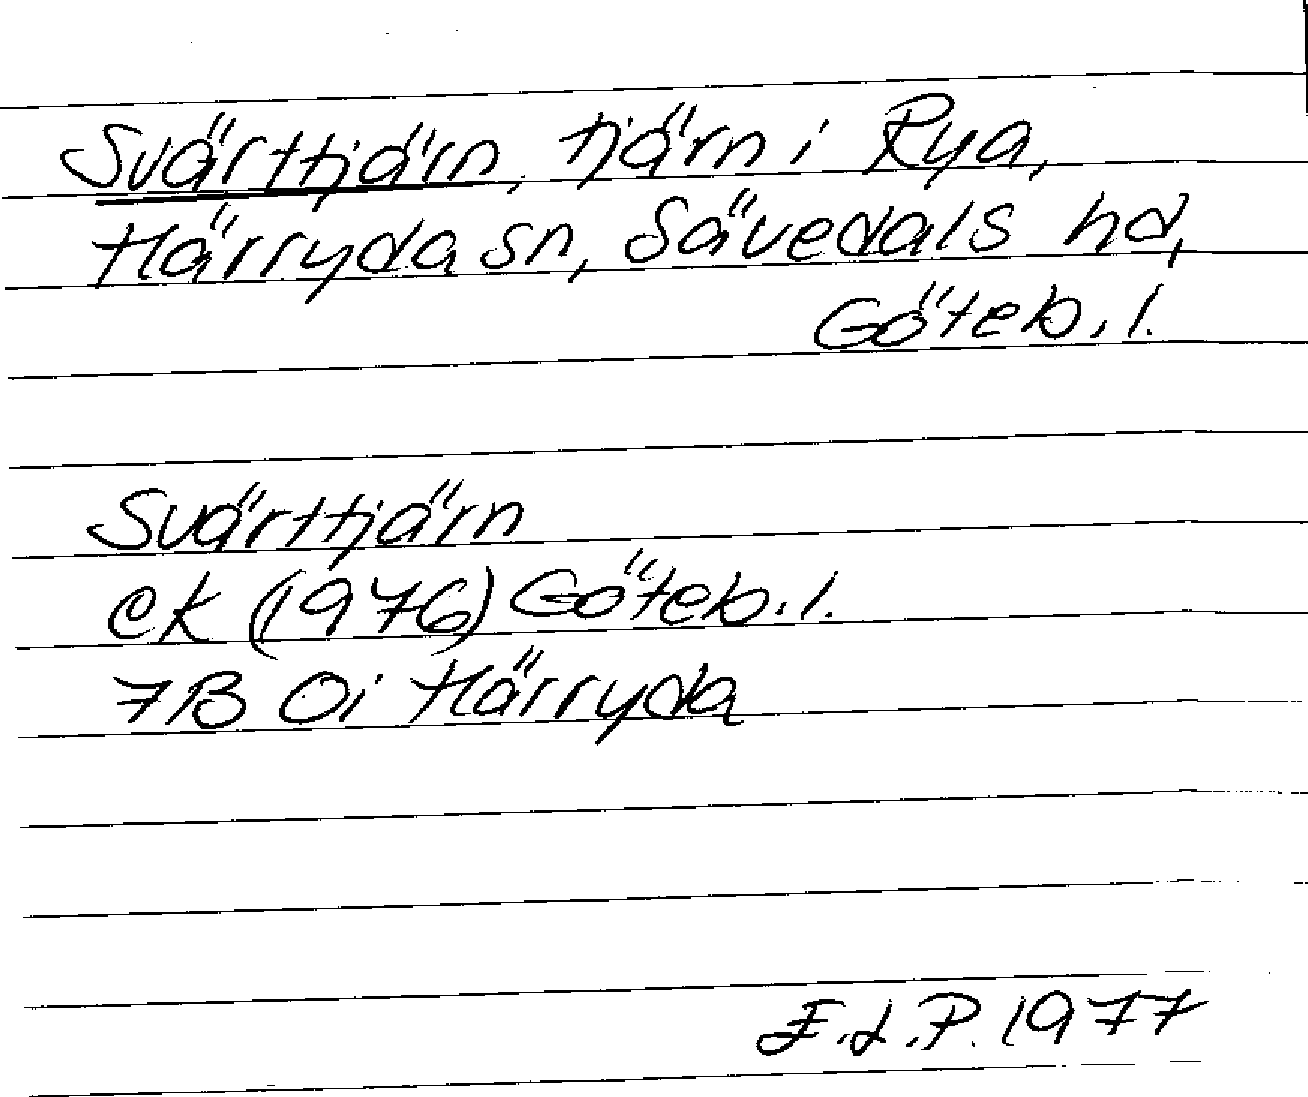 Svärttjärn, tjärn i Rya,
Härryda sn, Sävedals hd,
Göteb. l.
Svärttjärn
ek (1976) Göteb. l.
7B Oi Härryda
E.L.P. 1977